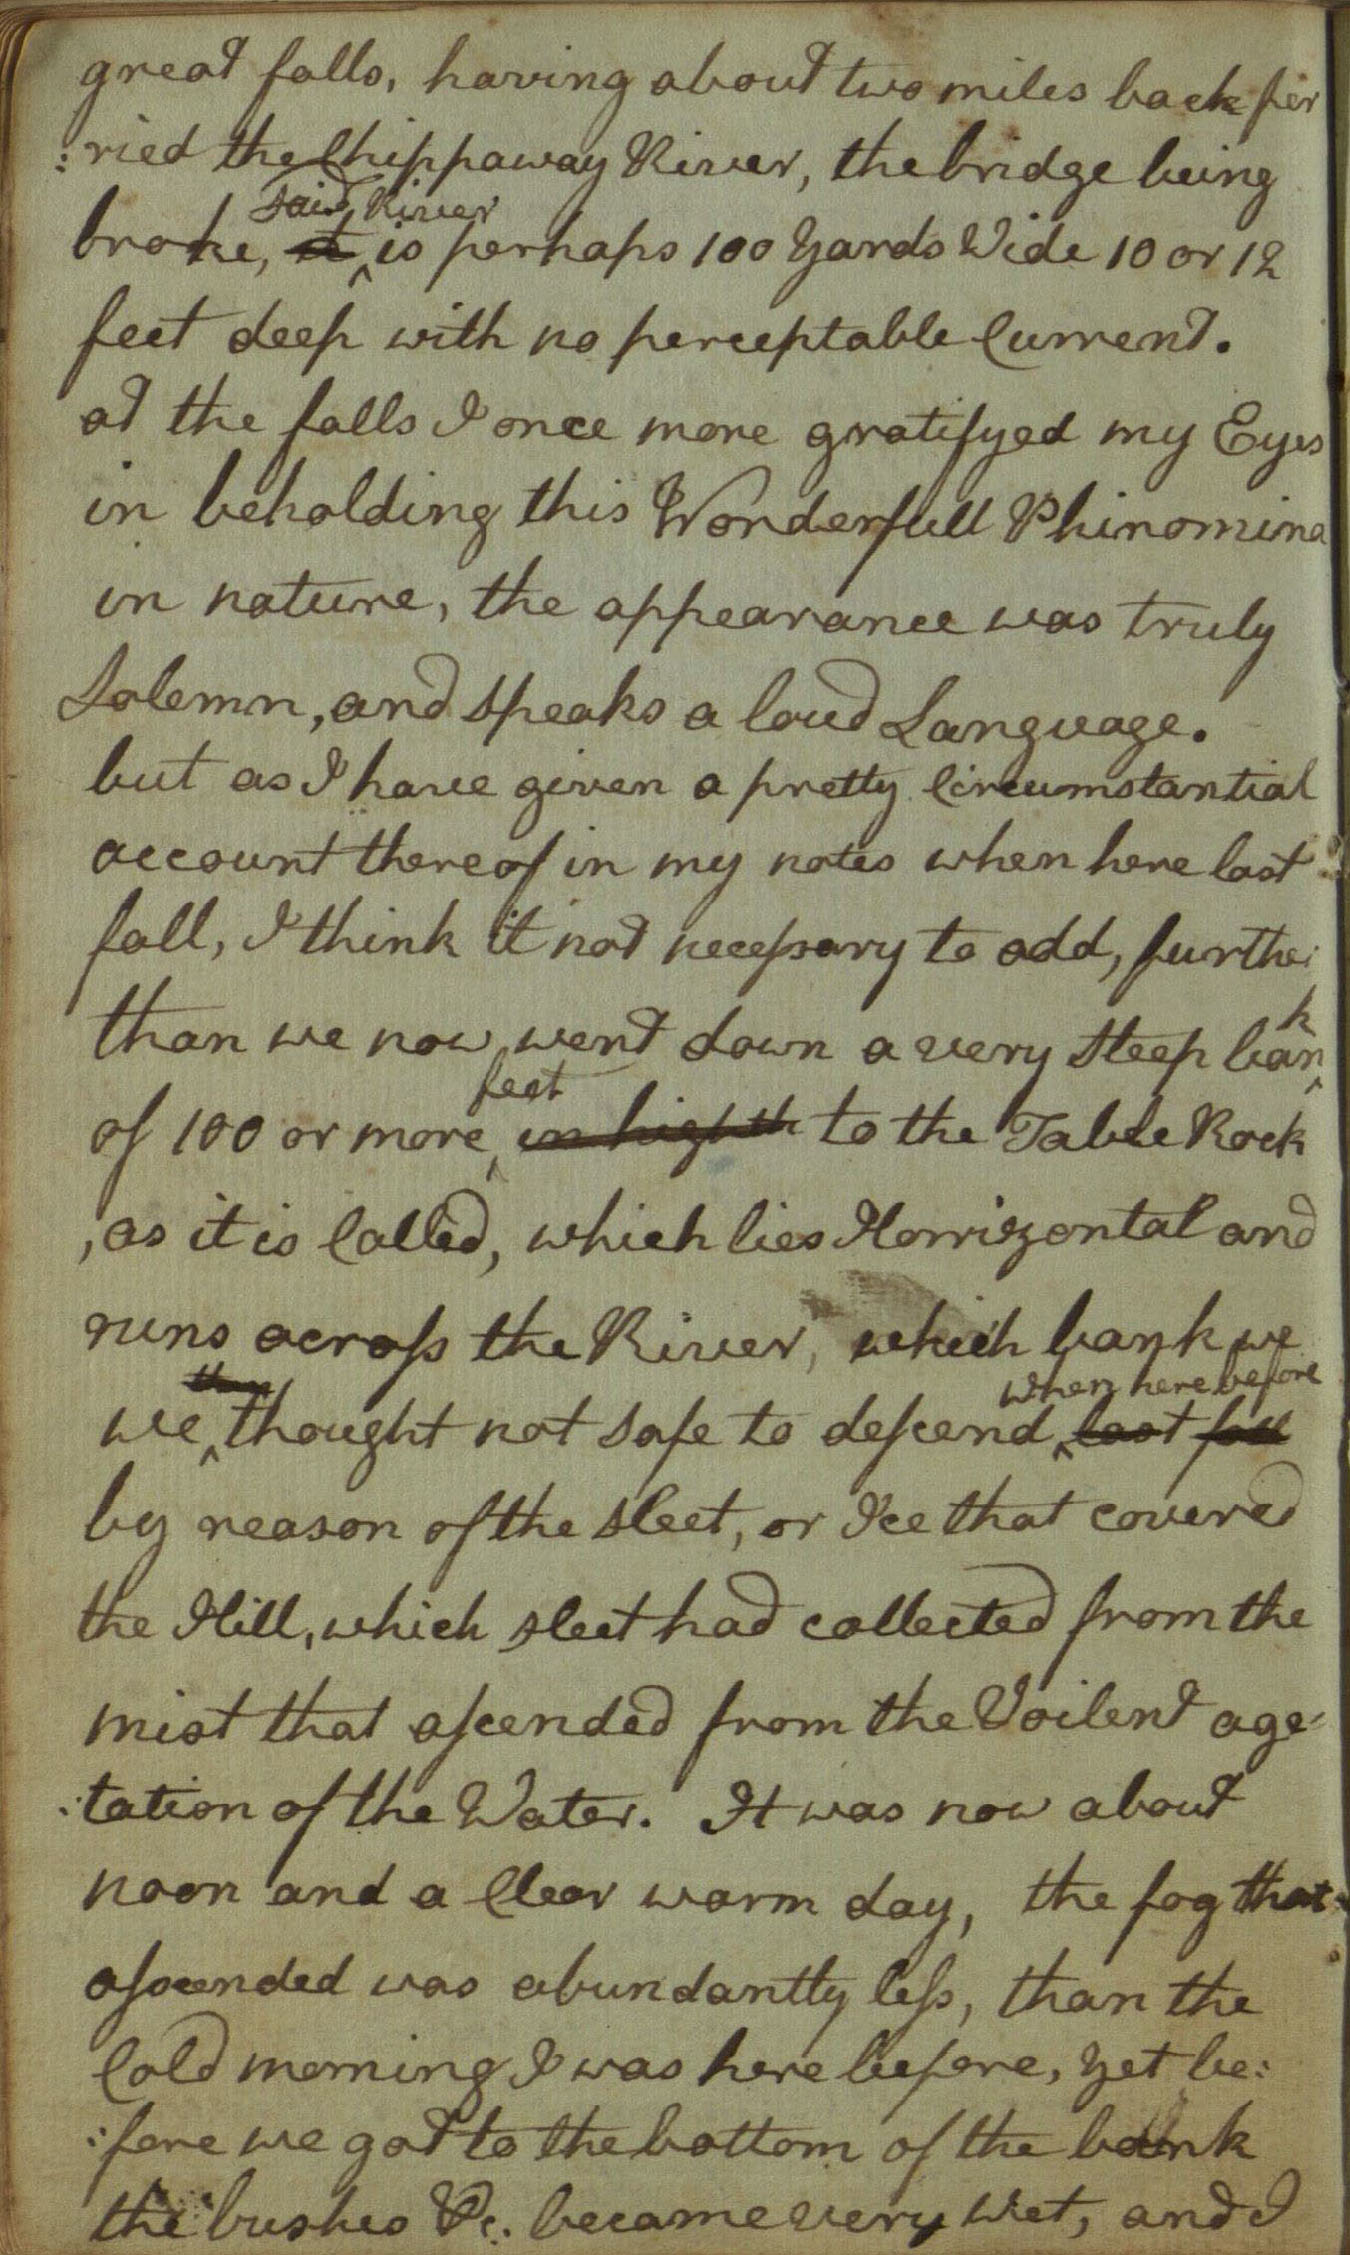 great falls, having about two miles back fer
:ried the Chippaway River, the bridge being
said River
broke, it is perhaps 100 Yards Wide 10 or 12
feet deep with no perceptable Current.
at the falls I once more gratifyed my Eyes
in beholding this Wonderfull Phinomina
in nature, the appearance was truly
Solemn, and speaks a loud Language.
but as I have given a pretty Circumstantial
account thereof in my notes when here last
fall, I think it not necessary to add, further
than we now went down a very steep bank
feet
of 100 or more in highth to the Table Rock
, as it is Called, which lies Horrizontal and
runs across the River, which bank we
then when here before
we thought not safe to descend last fall
by reason of the sleet, or Ice that covered
the Hill, which sleet had collected from the
mist that ascended from the Voilent age-
:tation of the Water. It was now about
noon and a Clear warm day, the fog that
ascended was abundantly less, than the
Cold morning I was here before, yet be:
:fore we got to the bottom of the bank
the bushes &c. became very wet, and I